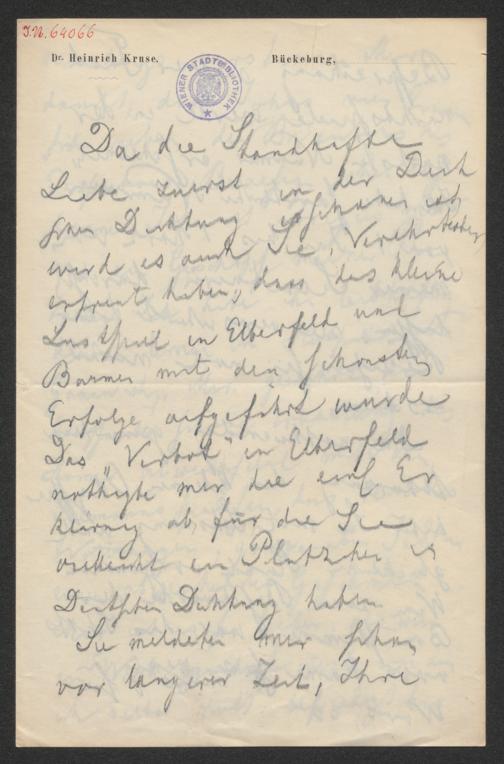 J.N. 64066
Dr. Heinrich Kruse.
Bückeburg,
WIENER STADTBIBLIOTHEK
Da die Standhafte
Liebe zuerst in der Deut
schen Dichtung erschienen ist
wird es auch Sie, Verehrtester
erfreut haben, dass das kleine
Lustspiel in Elberfeld und
Barmen mit dem schönsten
Erfolge aufgeführt wurde
Das "Verbot" in Elberfeld
nöthigte mir die Er
klärung ab, für die Sie
vielleicht ein Plätzchen in
Deutschen Dichtung haben
Sie meldeten mir schon
vor längerer Zeit, Ihre